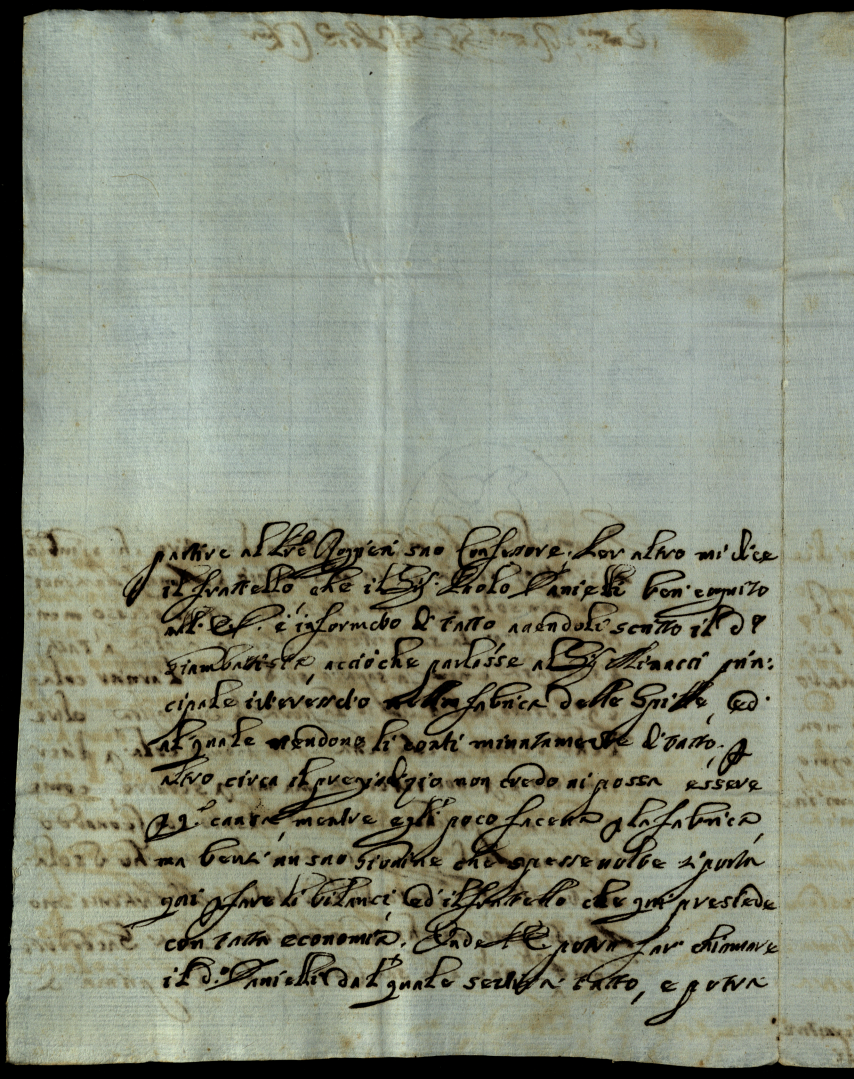 partire al Pre Ruggieri suo Confessore. Per altro mi dice
il fratello che il Sig. Paolo Danielli ben cognito
all' è informato di tutto avendoli scritto il d.º
Giambattista acciò che parlasse al Sig. Minacci prin:
cipale interessato nella fabrica delle Spille, ed
al quale rendono li conti minutamente di tutto. p
altro, circa il pregiudizio non credo vi possa essere
p q.ª causa, mentre egli poco faceva p la fabrica,
ma bensì un suo Giovine che spesse volte si porta
qui p fare li bilanci ed il fratello che qui presiede
con tutta economia. Onde potrà far chiamare
il d.º Danielli dal quale sentirà tutto, e potrà